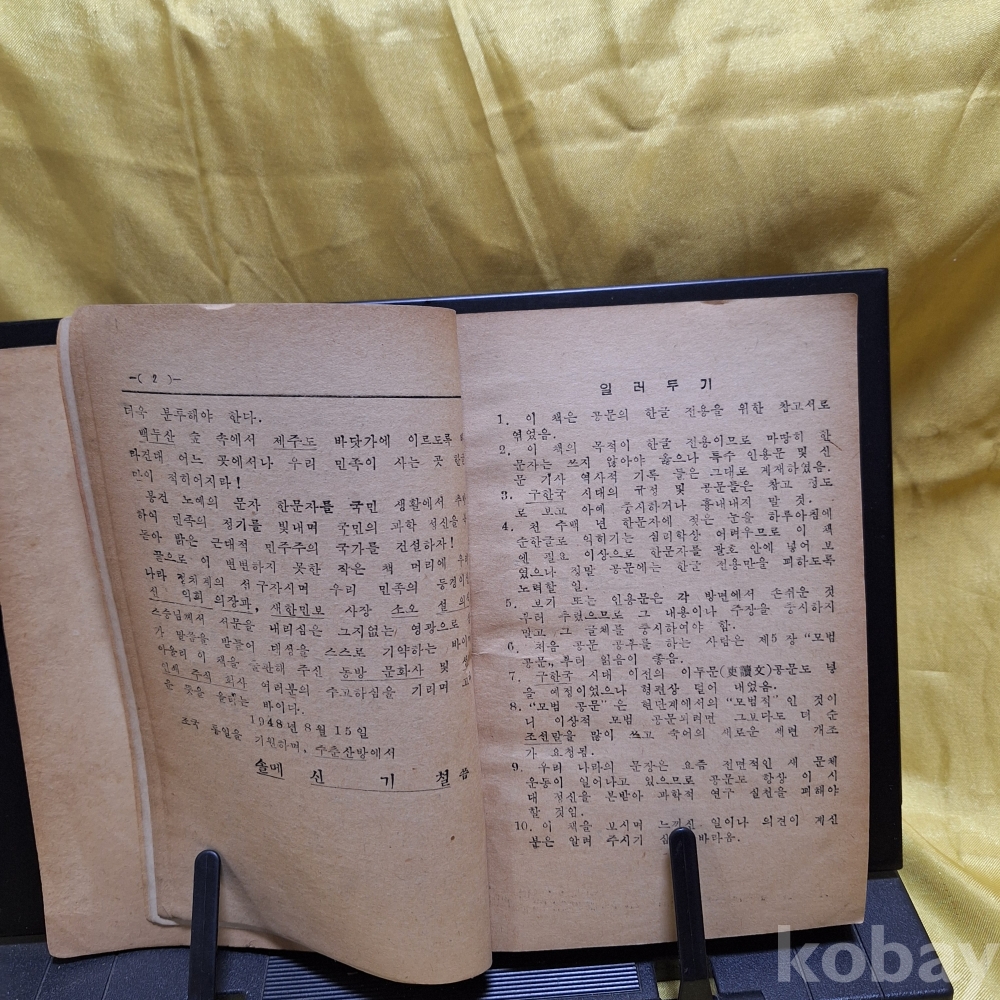 -( 2 )-
더욱 분투해야 한다.
백두산 숲 속에서 제주도 바닷가에 이르도록
타진대 어느 곳에서나 우리 민족이 사는 곳 한글
만이 적히어지라!
봉건 노예의 문자 한문자를 국민 생활에서
하여 민족의 정기를 빛내며 국민의 과학 정신을
돋아 밝은 근대적 민주주의 국가를 건설하자!
끝으로 이 변변하지 못한 작은 책 머리에
나라 정치계의 선구자시며 우리 민족의
의회 의장과, 새한민보 사장 소오 설
스승님께서 서문을 내리심은 그지없는 영광으로
가 말씀을 받들어 대성을 스스로 기약하는 바이
아울러 이 책을 출판해 주신 동방 문화사 및
인쇄 주식 회사 여러분의 수고하심을 기리며
은 뜻을 올리는 바이다.
1948년 8월 15일
조국 통일을 기원하며, 수춘산방에서
솔메 신 기 철 씀
일 러 두 기
1. 이 책은 공문의 한글 전용을 위한 참고서로
엮었음.
2. 이 책의 목적이 한글 전용이므로 마땅히 한
문자는 쓰지 않아야 옳으나 특수 인용문 및 신
문 기사 역사적 기록 들은 그대로 게재하였음.
3. 구한국 시대의 규정 및 공문들은 참고 정도
로 보고 아예 숭시하거나 흉내내지 말 것.
4. 천 수백 년 한문자에 젖은 눈을 하루아침에
순한글로 익히기는 심리학상 어려우므로 이 책
엔 필요 이상으로 한문자를 괄호 안에 넣어 보
였으나 정말 공문에는 한글 전용만을 꾀하도록
노력할 일.
5. 보기 또는 인용문은 각 방면에서 손쉬운 것
부터 추렸으므로 그 내용이나 주장을 중시하지
말고 그 글체를 중시하여야 함.
6. 처음 공문 공부를 하는 사람은 제5 장 "모범
공문„ 부터 읽음이 좋음.
7. 구한국 시대 이전의 이두문(吏讀文)공문도 넣
을 예정이었으나 형편상 덜어 내었음.
8. "모범 공문" 은 현단계에서의 "모범적" 인 것이
니 이상적 모범 공문되려면 그보다도 더 순
조선말을 많이 쓰고 숙어의 새로운 세련 개조
가 요청됨.
9. 우리 나라의 문장은 요즘 전면적인 새 문체
운동이 일어나고 있으므로 공문도 항상 이 시
대 정신을 본받아 과학적 연구 실천을 꾀해야
할 것임.
10. 이 책을 보시며 느끼신 일이나 의견이 계신
분은 알려 주시기 바라옴.
kobay